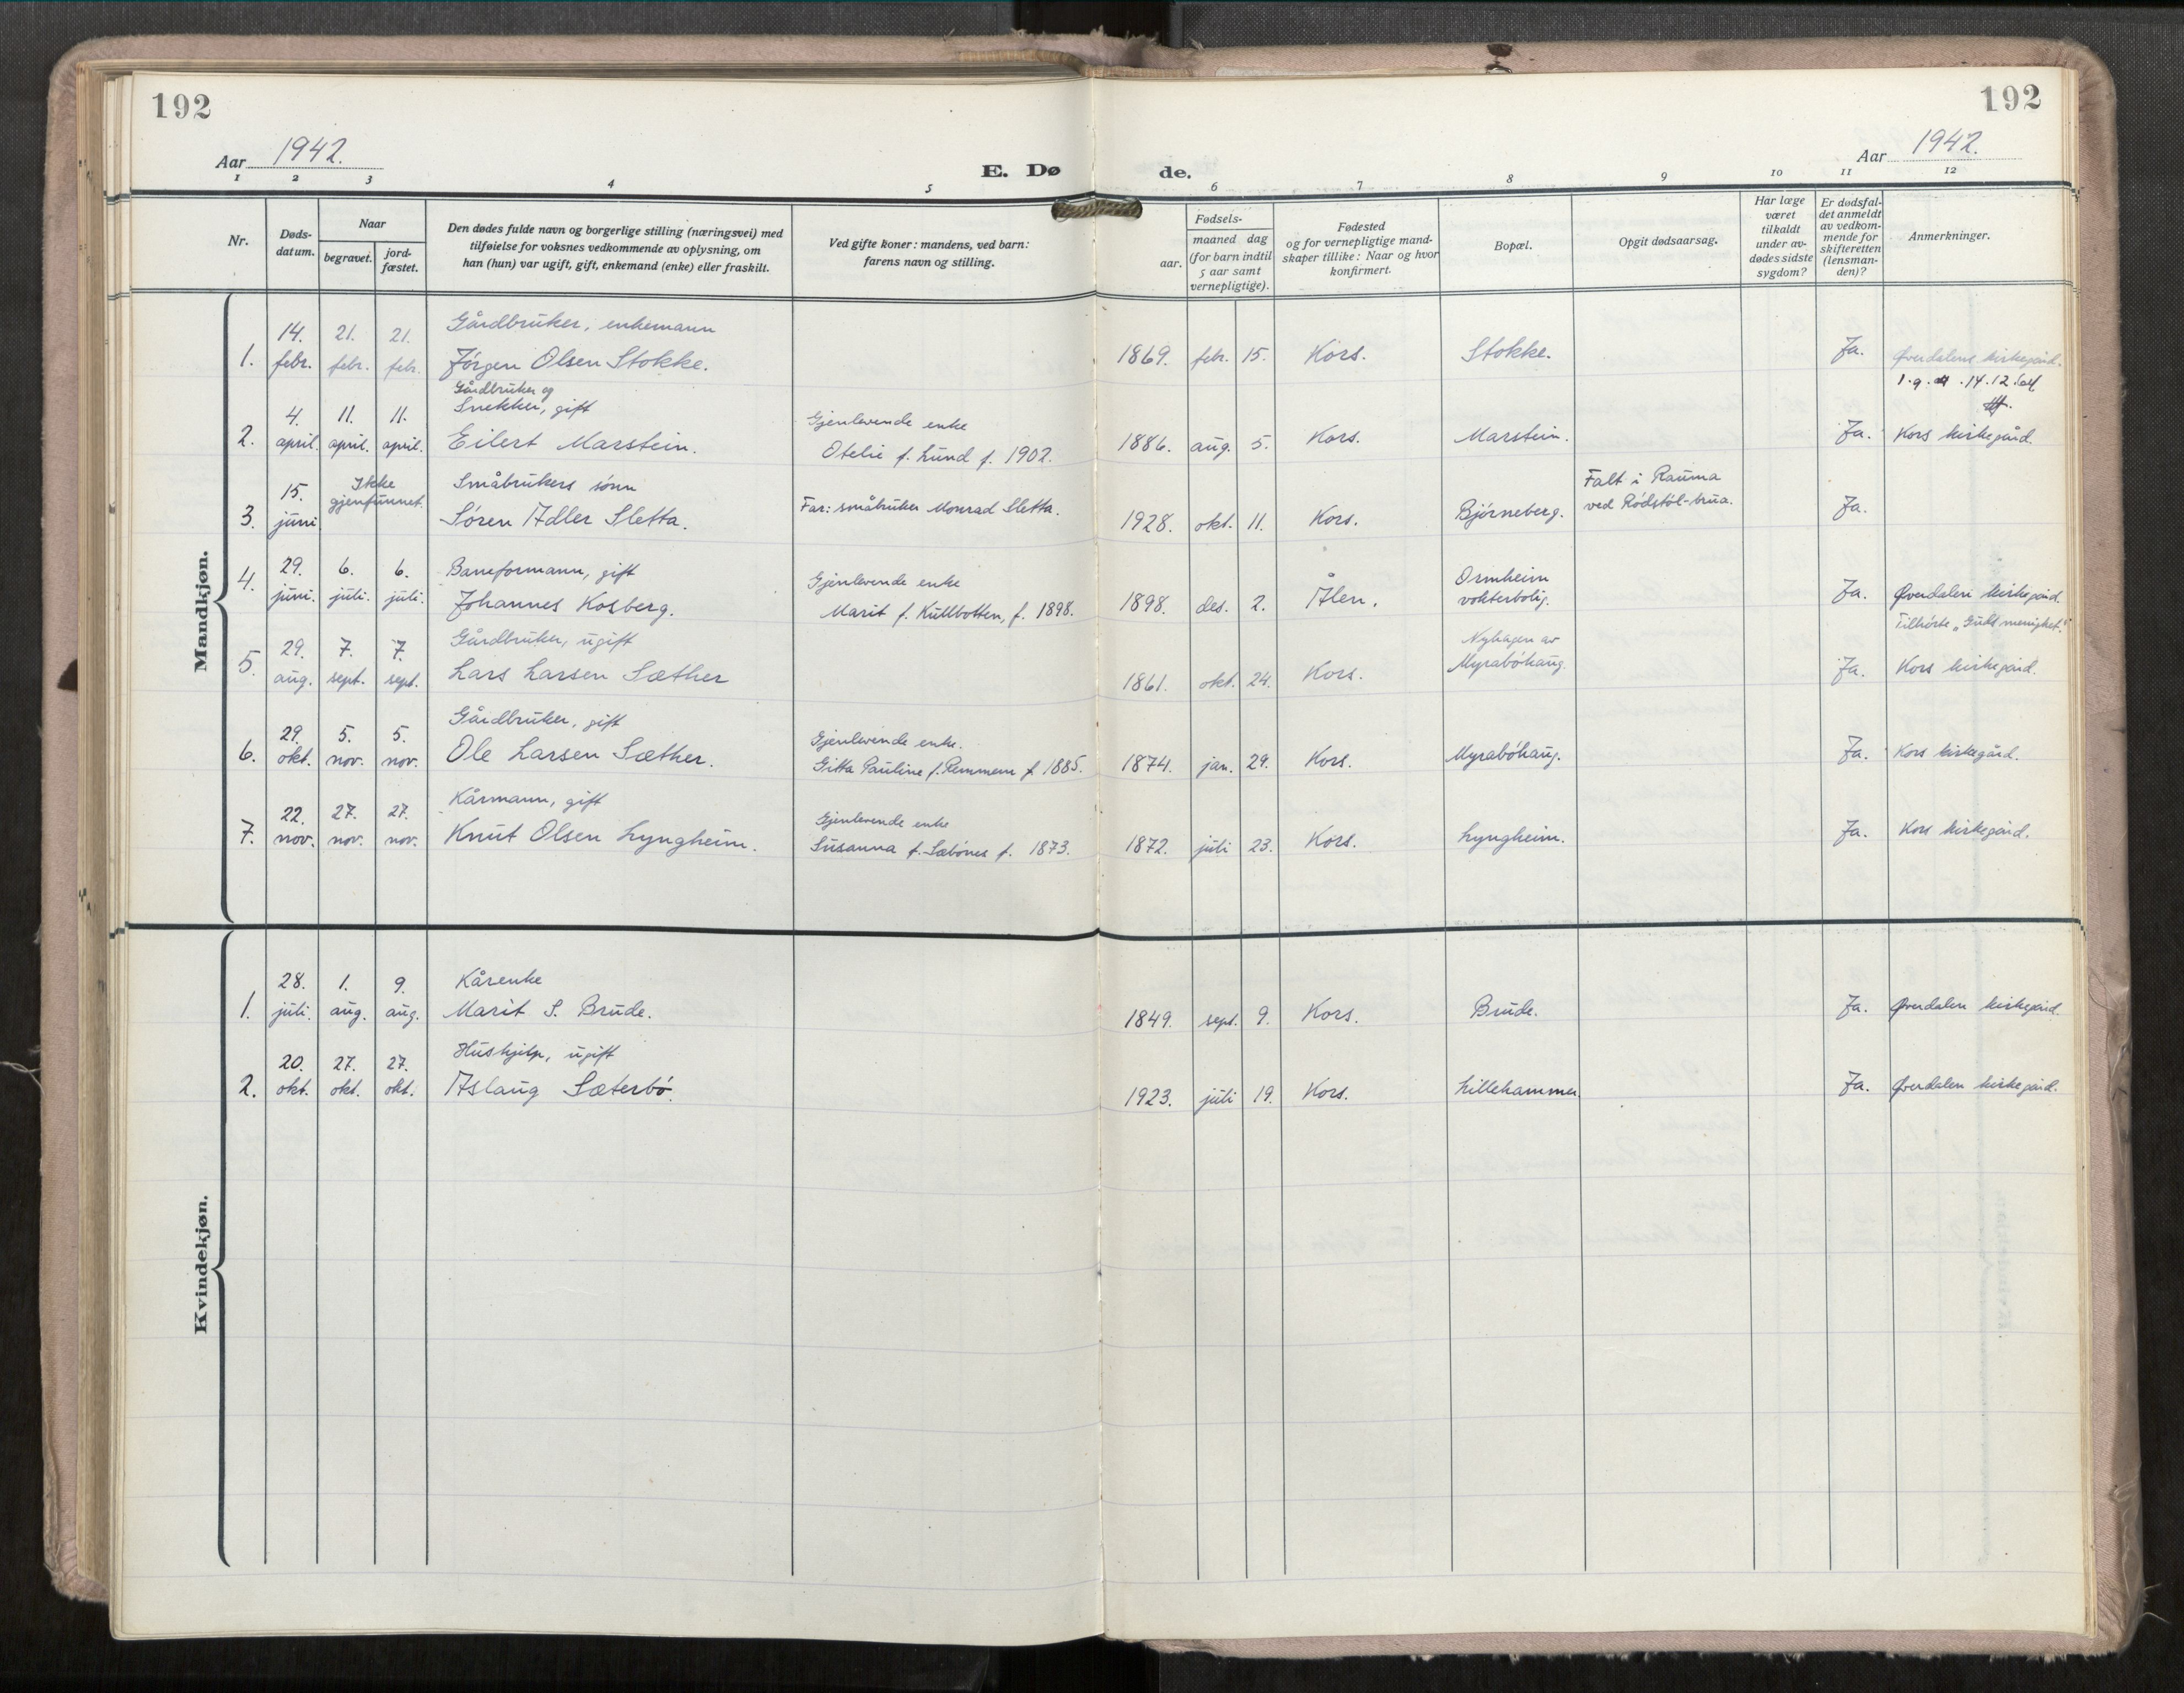 192
192
Aar 1942.
E. Dø
de.
Aar 1942.
1 2 3 4 5 6 7 8 9 10 11 12
Nr.
Døds-
datum.
Naar
begravet.
jord-
fæstet.
Den dødes fulde navn og borgerlige stilling (næringsvei) med
tilføielse for voksnes vedkommende av oplysning, om
han (hun) var ugift, gift, enkemand (enke) eller fraskilt.
Ved gifte koner: mandens, ved barn:
farens navn og stilling.
Fødsels-
aar.
maaned dag
(for barn indtil
5 aar samt
vernepligtige).
Fødested
og for vernepligtige mand-
skaper tillike: Naar og hvor
konfirmert.
Bopæl.
Opgit dødsaarsag.
Har læge
været
tilkaldt
under av-
dødes sidste
sygdom?
Er dødsfal-
det anmeldt
av vedkom-
mende for
skifteretten
(lensman-
den)?
Anmerkninger.
Mandkjøn.
14. 21. 21. Gårdbruker, enkemann
1. febr. febr. febr. Jörgen Olsen Stokke. 1869. febr. 15. Kors. Stokke. Ja. Øverdalens kirkegård.
1.9. 14.12
Gårdbruker og
4. 11. 11. Snekker, gift Gjenlevende enke
2. april. april. april. Eilert Marstein. Otelie f. Lund f. 1902. 1886. aug. 5. Kors. Marstein. Ja. Kors kirkegård.
15. Ikke Småbrukers sönn Falt i Rauma
gjenfunnet. Far: småbruker Monrad Sletta. ved Rödstöl-brua.
3. juni Sören Adler Sletta. 1928. okt. 11. Kors. Björneberg. Ja.
29. 6. 6. Baneformann, gift Gjenlevende enke Ormheim
4. juni. juli. juli. Johannes Kosberg. Marit f. Kullbotten, f. 1898. 1898. des. 2. Ålen. vokterbolig. Ja. Øverdalen kirkegård.
Tilhörte "Guds menighet."
29. 7. 7. Gårdbruker, ugift Nyhagen av
5. aug. sept. sept. Lars Larsen Sæther 1861. okt. 24. Kors. Myraböhaug. Ja. Kors kirkegård.
29. 5. 5. Gårdbruker, gift Gjenlevende enke.
6. okt. nov. nov. Ole Larsen Sæther. Gitta Pauline f. Remmem f. 1885. 1874. jan. 29. Kors. Myraböhaug. Ja. Kors kirkegård.
22. 27. 27. Kårmann, gift Gjenlevende enke
7. nov. nov. nov. Knut Olsen Lyngheim. Susanna f. Sæbönes f. 1873. 1872. juli 23. Kors. Lyngheim. Ja. Kors kirkegård.
Kvindekjøn.
28. 1. 9. Kårenke
1. juli. aug. aug. Marit S. Brude. 1849. sept. 9. Kors. Brude. Ja. Øverdalen kirkegård.
20. 27. 27. Hushjelp, ugift
2. okt. okt. okt. Aslaug Sæterbö. 1923. juli 19. Kors. Lillehammer. Ja. Øverdalen kirkegård.